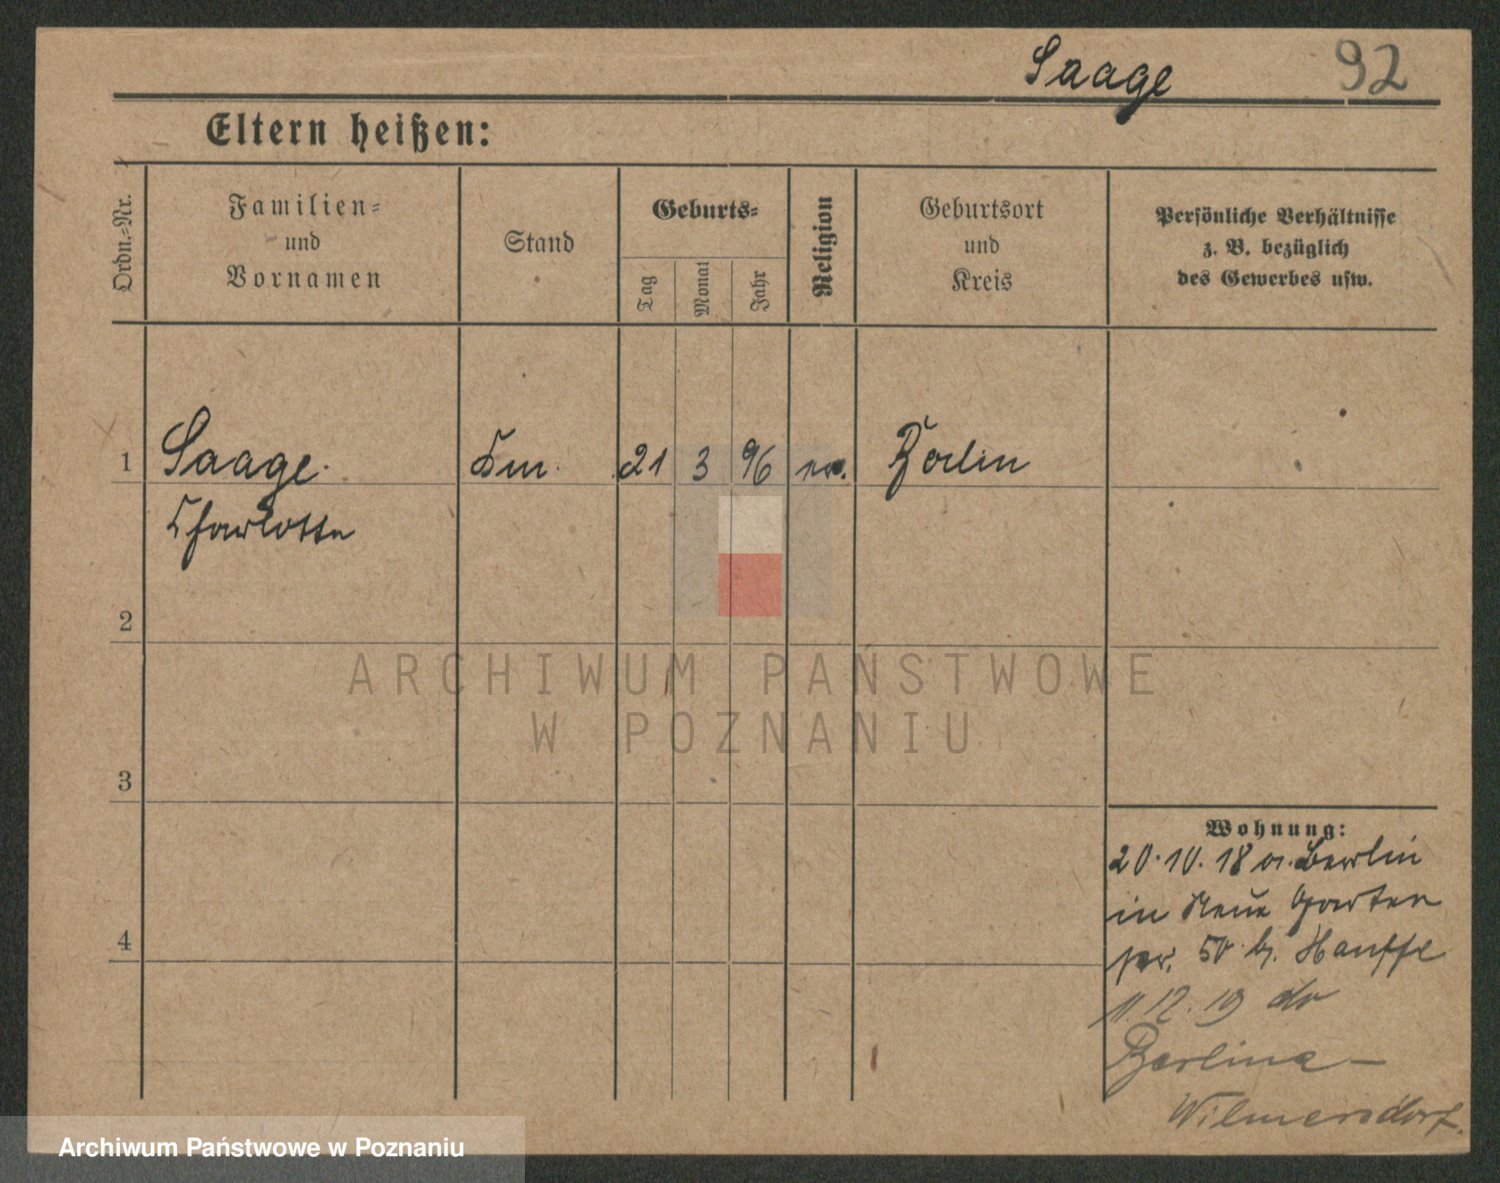 Saage 92
Eltern heißen:
Ordn.-Nr.
Familien-
und
Vornamen
Stand
Geburts-
Tag
Monat
Jahr
Religion
Geburtsort
und
Kreis
Persönliche Verhältnisse
z. B. bezüglich
des Gewerbes usw.
1 Saage. 21 3 96 ev. Berlin
Charlotte
2
3
4
ARCHIWUM PAŃSTWOWE
W POZNANIU
Wohnung:
20.10.18 a. Berlin
in Neue Garten
50 b. Hauffe
11.12.19
Berlin-
Wilmersdorf.
Archiwum Państwowe w Poznaniu